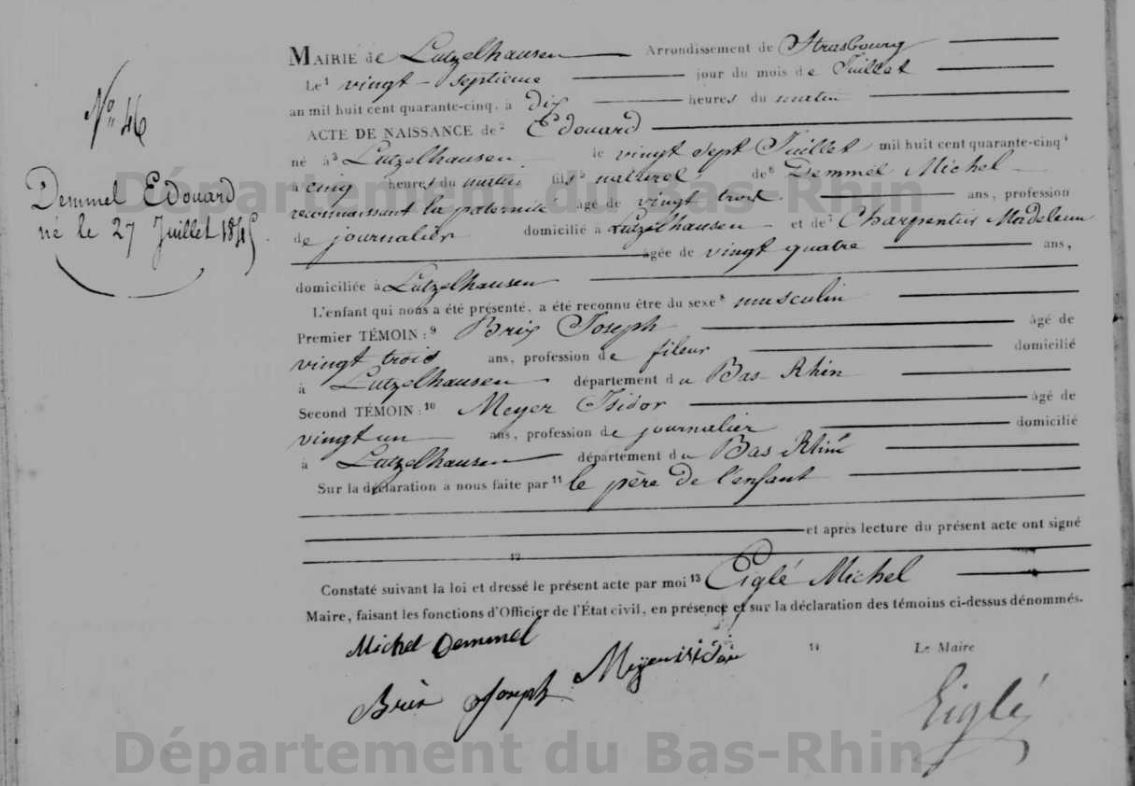 N° 46
Demmel Edouard
né le 27 Juillet 1845.
MAIRIE de Lutzelhausen Arrondissement de Strasbourg
Le¹ vingt-septieme jour du mois de Juillet
an mil huit cent quarante-cinq, à dix heures du matin
ACTE DE NAISSANCE de² Edouard
né à³ Lutzelhausen le vingt sept Juillet mil huit cent quarante-cinq⁴
à cinq heures du matin fils⁵ naturel de⁶ Demmel Michel
reconnaissant la paternité âgé de vingt trois ans, profession
de journalier domicilié à Lutzelhausen et de⁷ Charpentier Madeleine
âgée de vingt quatre ans,
domiciliée à Lutzelhausen
L'enfant qui nous a été présenté, a été reconnu être du sexe⁸ masculin
Premier TÉMOIN :⁹ Brix Joseph âgé de
vingt trois ans, profession de fileur domicilié
à Lutzelhausen département du Bas-Rhin
Second TÉMOIN :¹⁰ Meyer Isidor âgé de
vingt un ans, profession de journalier domicilié
à Lutzelhausen département du Bas Rhin
Sur la déclaration à nous faite par¹¹ le père de l'enfant
et après lecture du présent acte ont signé
12
Constaté suivant la loi et dressé le présent acte par moi¹³ Eiglé Michel
Maire, faisant les fonctions d'Officier de l'État civil, en présence et sur la déclaration des témoins ci-dessus dénommés.
Michel Demmel
Brix Joseph Meyer isidor 14 Le Maire
Eiglé
Département du Bas-Rhin
Département du Bas-Rhin